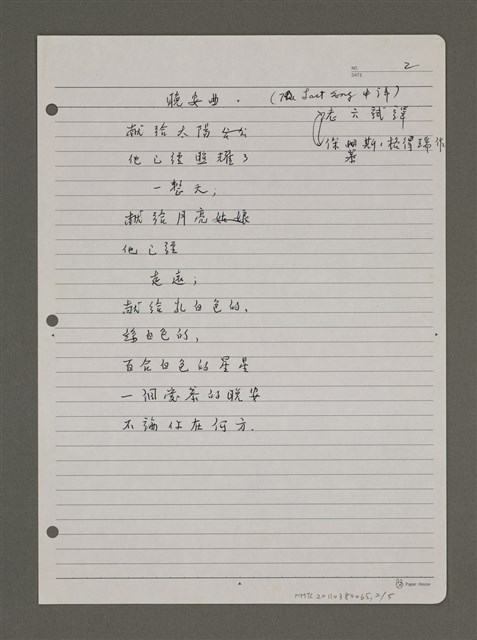 NO. 2
DATE
晚安曲. (The Last Song 中译)
老六試譯
徐姆斯・格得瑞作
獻給太陽公公
他已經照耀了
一整天;
獻給月亮姑娘
他已經
走遠;
獻給乳白色的,
絲白色的,
百合白色的星星
一個愛慕的晚安
不論你在何方.
Paper House
MMTL20110380065, 2/5